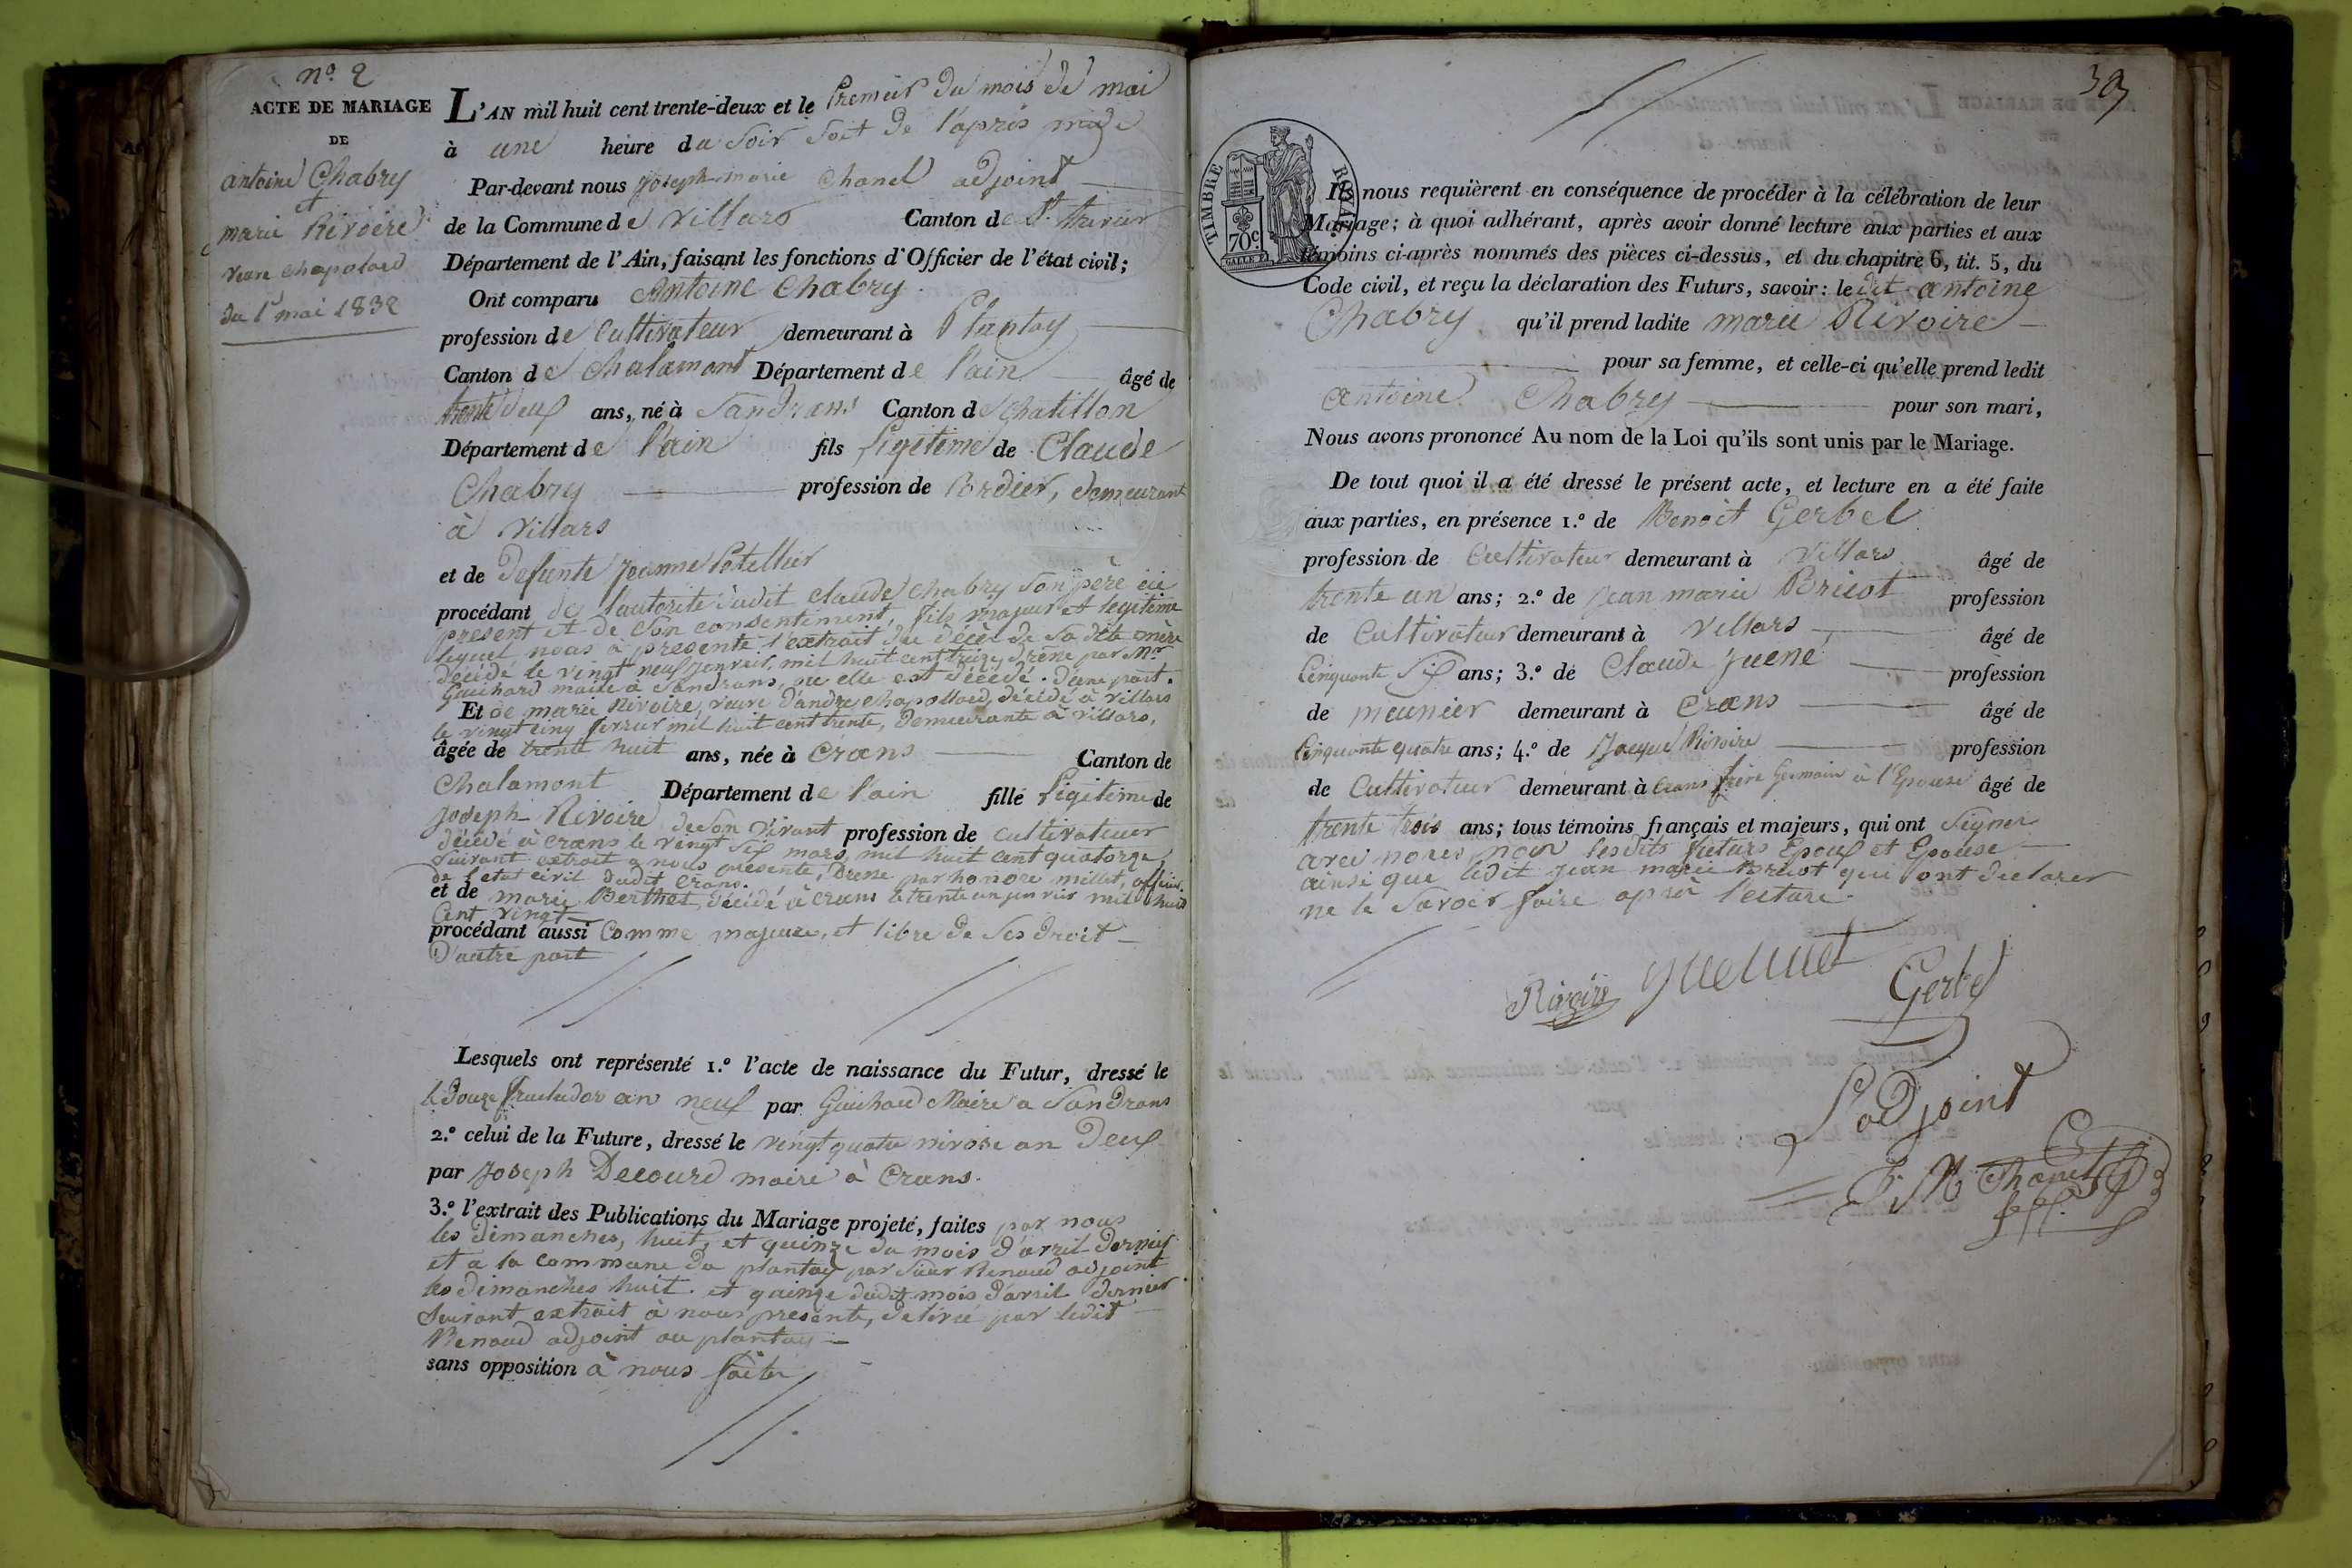 nº. 2
ACTE DE MARIAGE
DE
antoine Chabry
et
marie Rivoire
veuve chapolard
du 1er mai 1832
L'AN mil huit cent trente-deux et le Premier du mois de mai
à une heure du soir soit de l'après midi
Par-devant nous joseph marie Chanel adjoint
de la Commune de villars Canton de St. trivier
Département de l'Ain, faisant les fonctions d'Officier de l'état civil;
Ont comparu Antoine Chabry
profession de Cultivateur demeurant à Plantay
Canton de Chalamont Département de l'ain âgé de
trente deux ans, né à Sandrans Canton de Chatillon
Département de l'ain fils légitime de Claude
Chabry profession de Bordier, demeurant
à Villars
et de defunte jeanne
procédant de l'autorité dudit claude Chabry son père ici
présent et de son consentiment, fils majeur et legitime
lequel nous à presenté l'extrait du décès de sa dite mère
décédé le vingt neuf janvier, mil huit cent treize, drené par Mr
Guichard maire à Sandrans, ou elle est décédé. d'une part.
Et de marie Rivoire, veuve d'andre chapollard, décédé à villars
le vingt cinq fevrier mil huit cent trente, demeurante à villars,
âgée de trente huit ans, née à Crans Canton de
Chalamont Département de l'ain fille légitime de
joseph Rivoire de son vivant profession de cultivateur
décédé à crans le vingt six mars, mil huit cent quatorze,
suivant extrait a nous presenté, drené par honoré millet, officier
de l'etat civil dudit Crans.
et de marie Berthet, décédé à crans le trente un janvier mil huit
Cent vingt
procédant aussi Comme majeure, et libre de ses droit
D'autre part
Lesquels ont représenté 1.º l'acte de naissance du Futur, dressé le
le Douze fructidor an neuf par Guichard Maire a Sandrans
2.º celui de la Future, dressé le vingt quatre nivose an Deux
par joseph Decourd maire à Crans.
3.º l'extrait des Publications du Mariage projeté, faites par nous
les dimanches, huit, et quinze du mois d'avril dernier
et a la commune du plantay par sieur Renaud adjoint
les dimanches huit et quinze dudit mois d'avril dernier
suivant extrait à nous presenté, delivré par ledit
Renaud adjoint au plantay
sans opposition à nous faite
39
TIMBRE ROYAL
70c.
Ils nous requièrent en conséquence de procéder à la célébration de leur
Mariage; à quoi adhérant, après avoir donné lecture aux parties et aux
témoins ci-après nommés des pièces ci-dessus, et du chapitre 6, tit. 5, du
Code civil, et reçu la déclaration des Futurs, savoir: le dit antoine
Chabry qu'il prend ladite marie Rivoire
pour sa femme, et celle-ci qu'elle prend ledit
antoine Chabry pour son mari,
Nous avons prononcé Au nom de la Loi qu'ils sont unis par le Mariage.
De tout quoi il a été dressé le présent acte, et lecture en a été faite
aux parties, en présence 1.º de Benoit Gerbel
profession de Cultivateur demeurant à Villars âgé de
trente un ans; 2.º de jean marie Bricot profession
de Cultivateur demeurant à Villars âgé de
Cinquante six ans; 3.º de Claude juene profession
de meunier demeurant à Crans âgé de
Cinquante quatre ans; 4.º de Jacque Rivoire profession
de Cultivateur demeurant à Crans frère Germain à l'Epouse âgé de
trente trois ans; tous témoins français et majeurs, qui ont signer
avec nous non lesdits futurs Epoux et Epouse
ainsi que ledit jean marie Bricot qui ont declarer
ne le savoir faire après lecture.
Rivoire Gerbel
L'adjoint
J. M Chanel